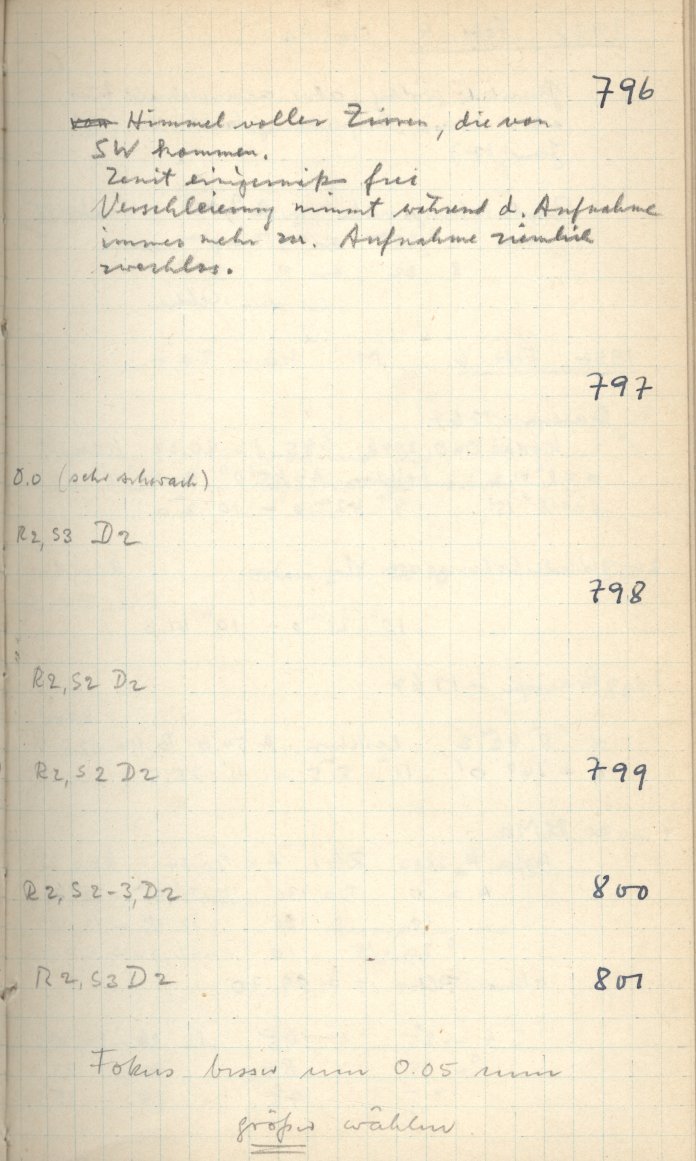 796
von Himmel voller Zirren, die von
SW kommen.
Zenit einigermaß frei
Verschleierung nimmt während d. Aufnahme
immer mehr zu. Aufnahme ziemlich
zwecklos.
797
0.0 (sehr schwach)
R2, S3 D2
798
R2, S2 D2
R2, S2 D2 799
R2, S2-3, D2 800
R2, S3 D2 801
Fokus besser um 0.05 mm
größer wählen